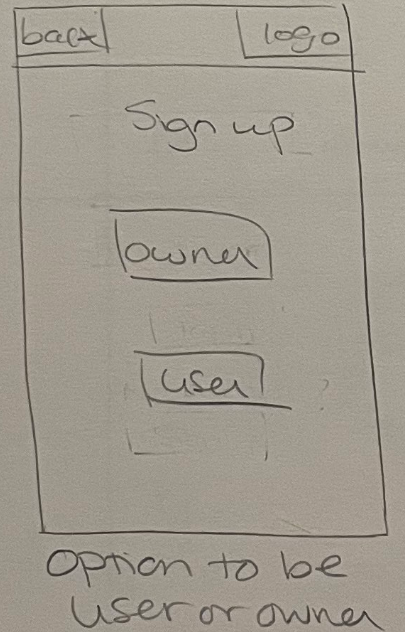 back logo
Sign up
owner
user
option to be
user or owner